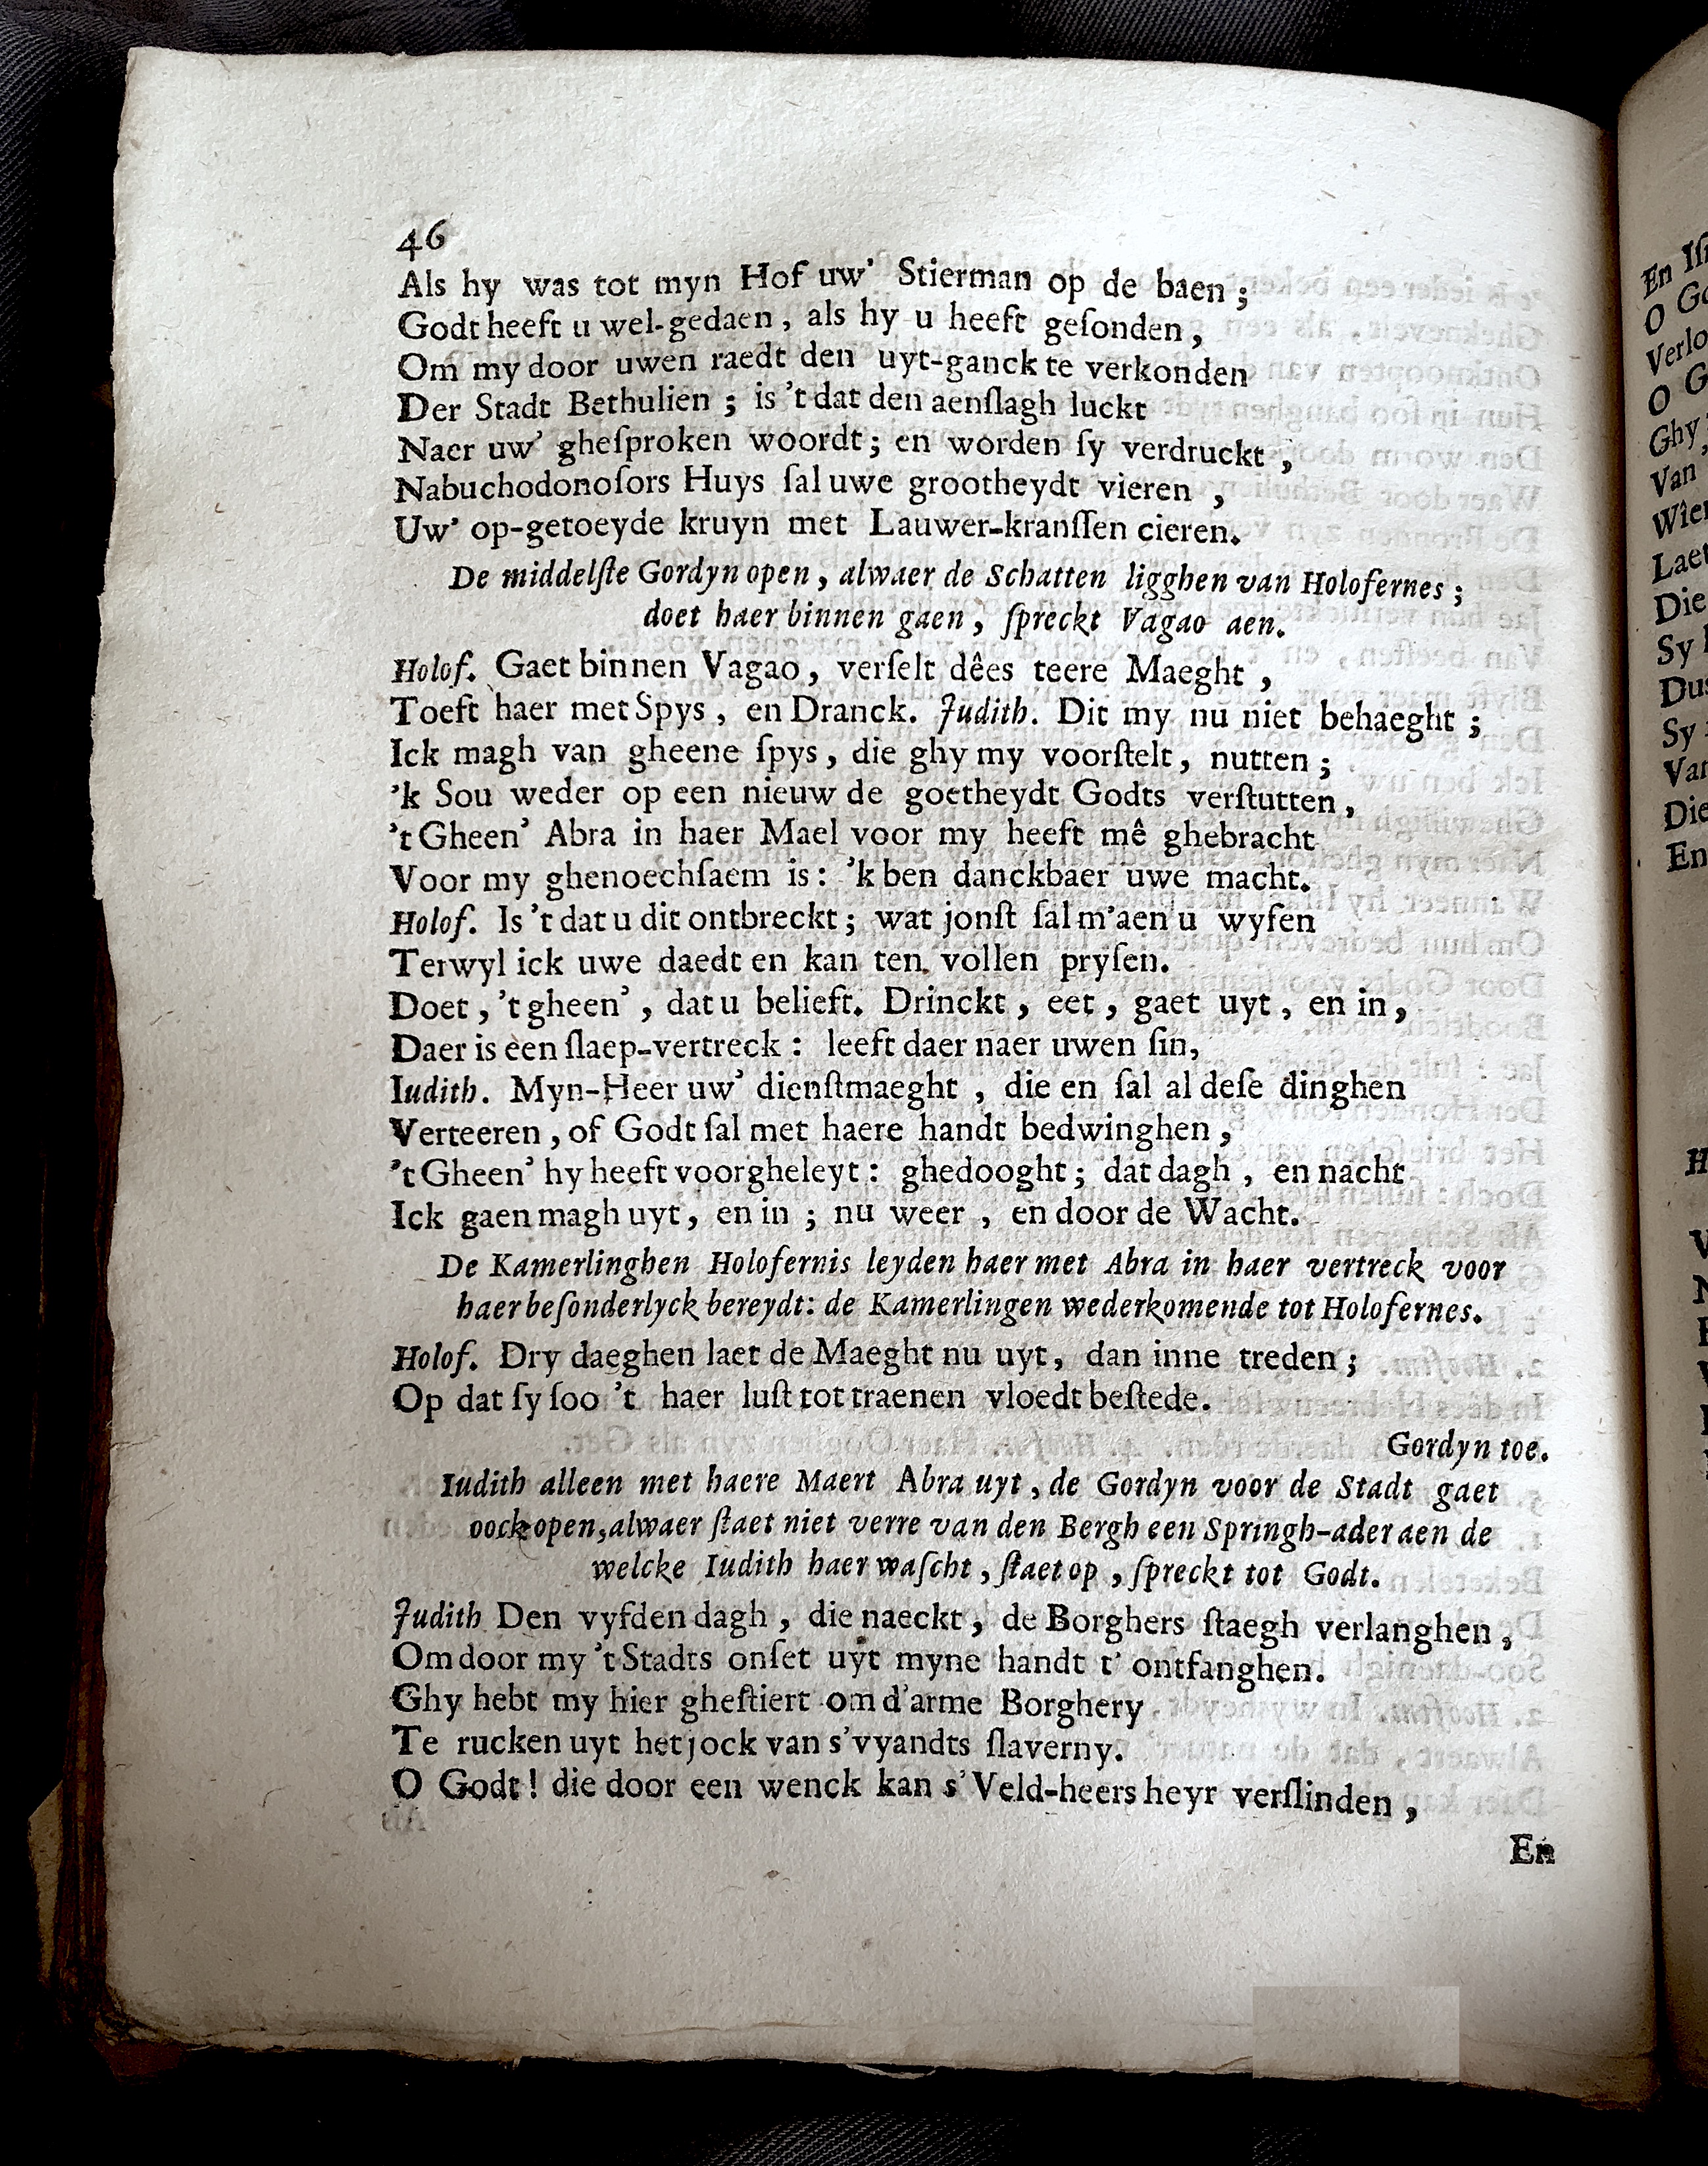 46
Als hy was tot myn Hof uw’ Stierman op de baen ;
Godt heeft u wel-gedaen , als hy u heeft geſonden ,
Om my door uwen raedt den uyt-ganck te verkonden
Der Stadt Bethulien ; is ’t dat den aenſlagh luckt
Naer uw’ gheſproken woordt ; en worden ſy verdruckt ,
Nabuchodonoſors Huys ſal uwe grootheydt vieren ,
Uw’ op-getoeyde kruyn met Lauwer-kranſſen cieren.
De middelſte Gordyn open , alwaer de Schatten ligghen van Holofernes ;
doet haer binnen gaen , ſpreckt Vagao aen.
Holof. Gaet binnen Vagao , verſelt dêes teere Maeght ,
Toeft haer met Spys , en Dranck. Judith. Dit my nu niet behaeght ;
Ick magh van gheene ſpys , die ghy my voorſtelt , nutten ;
’k Sou weder op een nieuw de goetheydt Godts verſtutten ,
’t Gheen’ Abra in haer Mael voor my heeft mê ghebracht
Voor my ghenoechſaem is : ’k ben danckbaer uwe macht.
Holof. Is ’t dat u dit ontbreckt ; wat jonſt ſal m’aen u wyſen
Terwyl ick uwe daedt en kan ten vollen pryſen.
Doet , ’t gheen’ , dat u belieft. Drinckt , eet , gaet uyt , en in ,
Daer is een ſlaep-vertreck : leeft daer naer uwen ſin,
Iudith. Myn-Heer uw’ dienſtmaeght , die en ſal al deſe dinghen
Verteeren , of Godt ſal met haere handt bedwinghen ,
’t Gheen’ hy heeft voorgheleyt : ghedooght ; dat dagh , en nacht
Ick gaen magh uyt , en in ; nu weer , en door de Wacht.
De Kamerlinghen Holofernis leyden haer met Abra in haer vertreck voor
haer beſonderlyck bereydt: de Kamerlingen wederkomende tot Holofernes.
Holof. Dry daeghen laet de Maeght nu uyt , dan inne treden ;
Op dat ſy ſoo ’t haer luſt tot traenen vloedt beſtede.
Gordyn toe.
Iudith alleen met haere Maert Abra uyt , de Gordyn voor de Stadt gaet
oock open, alwaer ſtaet niet verre van den Bergh een Springh-ader aen de
welcke Iudith haer waſcht , ſtaet op , ſpreckt tot Godt.
Judith Den vyfden dagh , die naeckt , de Borghers ſtaegh verlanghen ,
Om door my ’t Stadts onſet uyt myne handt t’ ontfanghen.
Ghy hebt my hier gheſtiert om d’arme Borghery
Te rucken uyt het jock van s’vyandts ſlaverny.
O Godt ! die door een wenck kan s’Veld-heers heyr verſlinden ,
En
En
O
Verlo
O
Ghy,
Van
Wier
Laet
Die
Sy
Dus
Sy
Van
Die
En
H